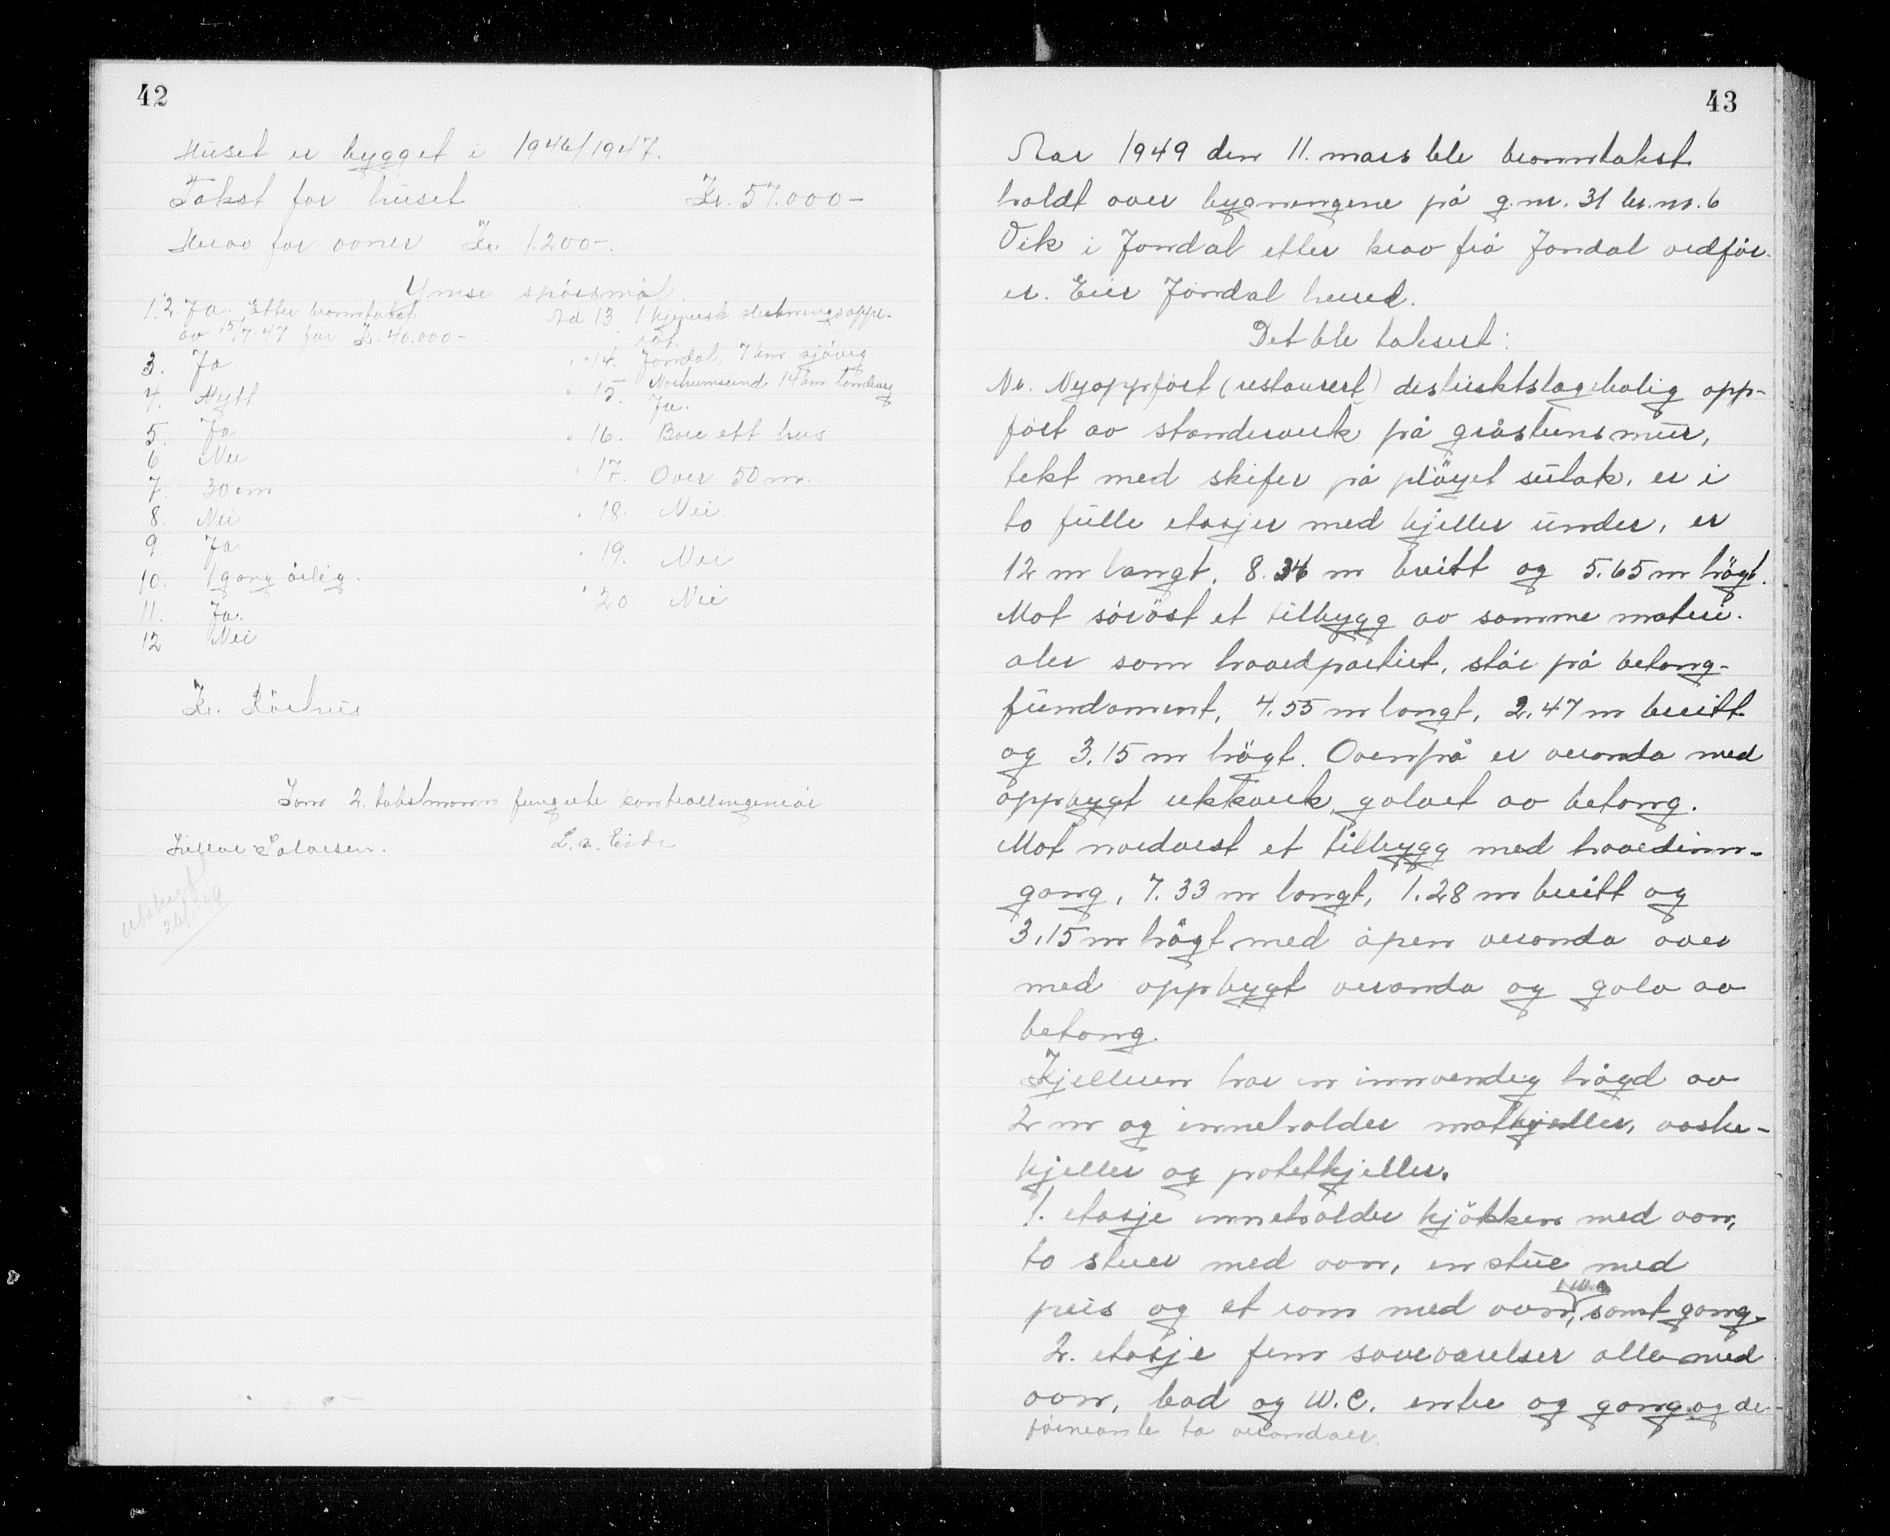 42
Huset er bygget i 1946/1947.
Takst for huset Kr. 57.000-
Herav for ovner Kr. 1.200-.
Ymse spörsmål.
1. 2. Ja. Etter branntakst
av 15/7-47 for Kr. 40.000-
3. Ja
4. Nytt
5. Ja
6. Nei
7. 30 cm
8. Nei
9. Ja
10. 1 gang årlig.
11. Ja.
12 Nei
Ad 13. 1 kjemisk slukningsappa-
rat.
" 14. Jondal, 7 km sjöveg
Norheimsund 14 km
" 15. Ja.
" 16. Bare ett hus
" 17. Over 50 m.
" 18. Nei.
" 19. Nei
" 20 Nei
Kr. Börhus
Som 2. takstmann fungerte kontrollingeniör
Salvesen. L. n. Eide
43
Aar 1949 den 11. mars ble branntakst
holdt over bygningene på g.nr. 31 br.nr. 6
Vik i Jondal etter krav frå Jondal ordför-
er. Eier Jondal herred.
Det ble taksert:
Nr. Nyoppfört (restaurert) distriktslegebolig opp-
fört av standerverk på gråstensmur,
tekt med skifer på plöyet sutak, er i
to fulle etasjer med kjeller under, er
12 m langt, 8.34 m breitt og 5.65 m högt.
Mot söröst et tilbygg av samme materi-
aler som hovedpartiet, står på betong-
fundament, 4.55 m langt, 2.47 m breitt
og 3.15 m högt. Ovenpå er veranda med
oppbygt rekkverk, golvet av betong.
Mot nordvest et tilbygg med hovedinn-
gang, 7.33 m langt, 1.28 m breitt og
3.15 m högt med åpen veranda over
med oppbygt veranda og golv av
betong.
Kjelleren har en innvendig högd av
2 m og inneholder matkjeller, vaske-
kjeller og potetkjeller.
1. etasje inneholder kjökken med ovn,
to stuer med ovn, en stue med
peis og et rom med ovn, 1 W.C. samt gang.
2. etasje fem soveværelser alle med
ovn, bad og W.C. entre og gang og de
förnevnte to verandaer.